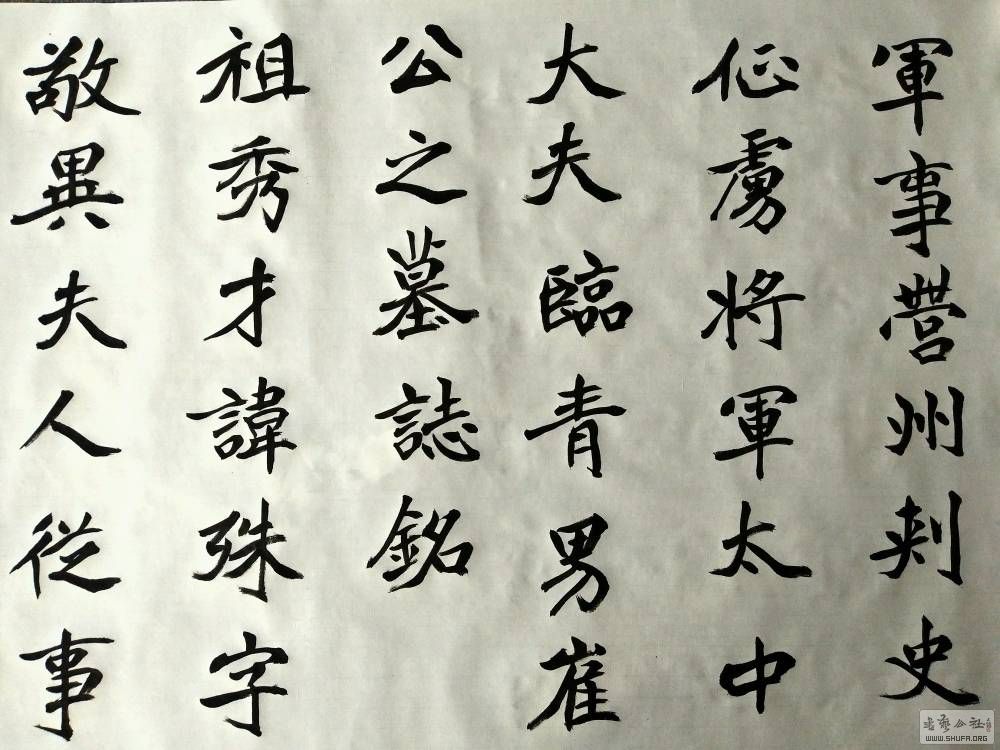 軍事營州刺史
征虜將軍太中
大夫臨青男崔
公之墓誌銘
祖秀才諱殊字
敬異夫人從事
書藝公社
WWW.SHUFA.ORG